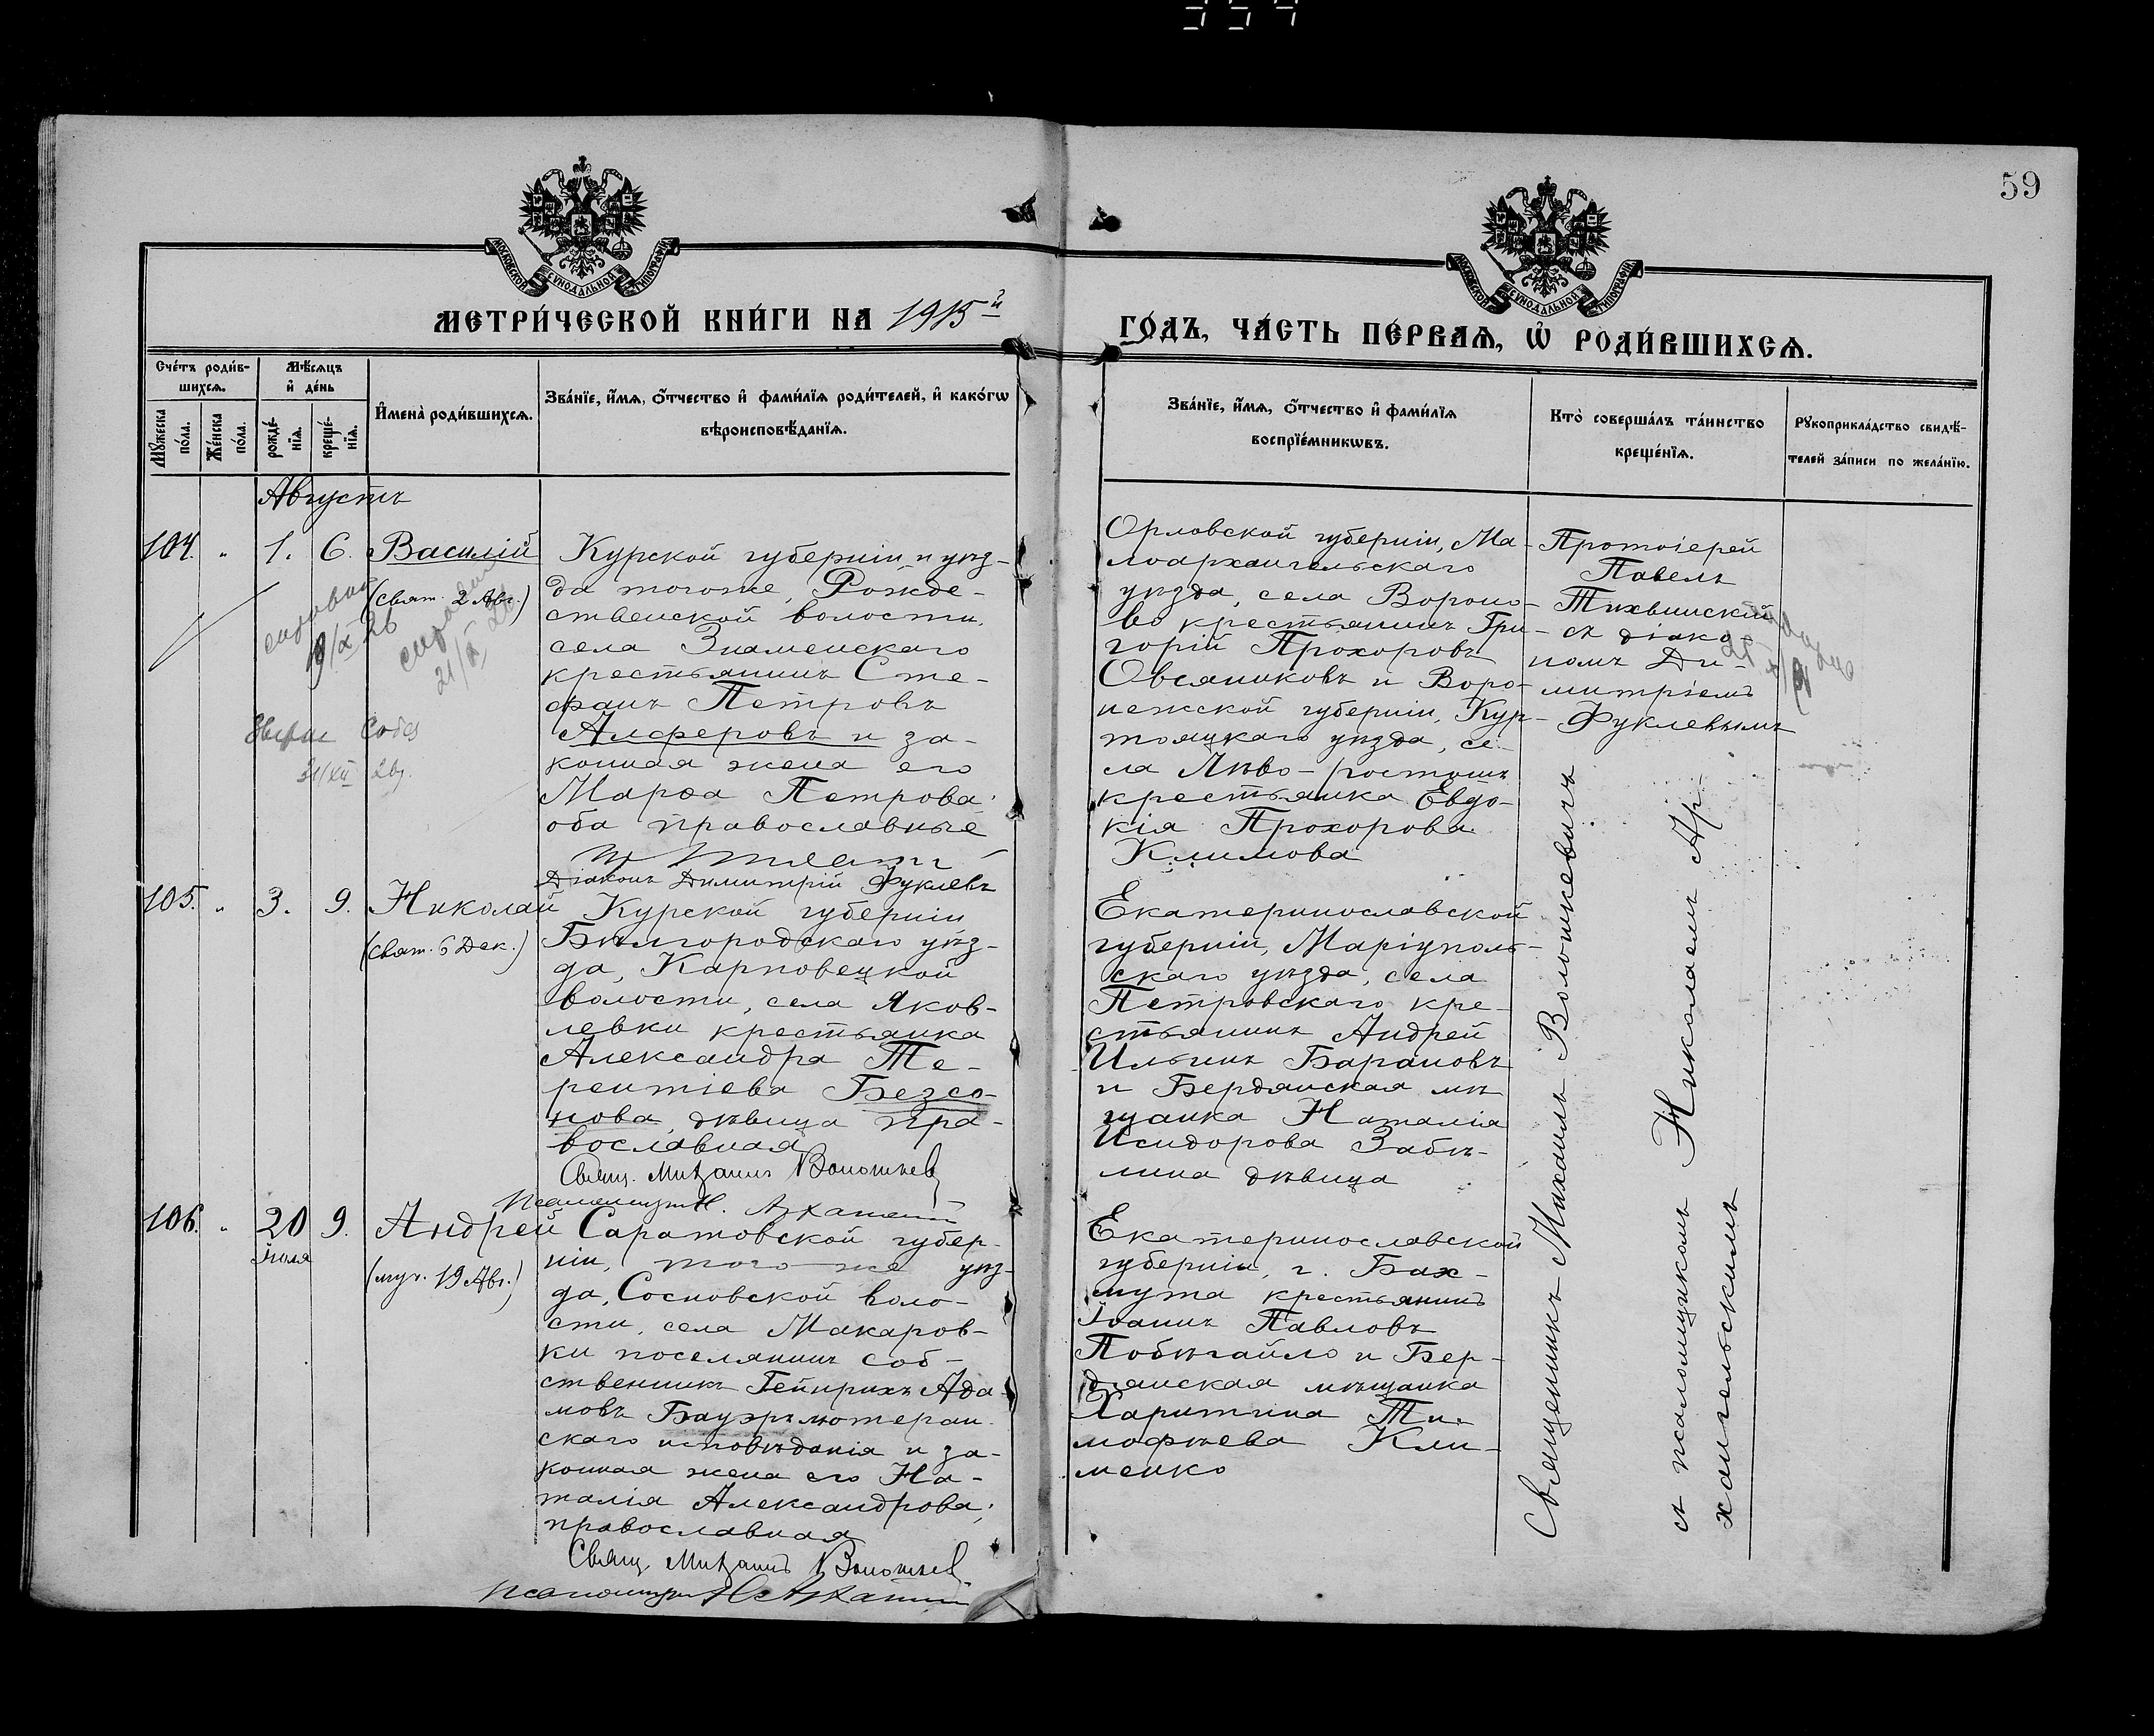 59
МОСКОВСКОЙ СУНОДАЛЬНОЙ ТИПОГРАФІИ
МОСКОВСКОЙ СУНОДАЛЬНОЙ ТИПОГРАФІИ
МЕТРИ́ЧЕСКОЙ КНИ́ГИ НА 1915й
ГО́ДЪ, ЧА́СТЬ ПЕ́РВАѦ, Ѡ҆ РОДИ́ВШИХСѦ.
Сче́тъ роди́в-
шихсѧ.
Мѣ́сѧцъ
и҆ де́нь
Мꙋ́жеска
по́ла.
Же́нска
по́ла.
рожде́-
нїѧ.
креще́-
нїѧ.
И҆мена̀ роди́вшихсѧ.
Зва́нїе, и҆́мѧ, ѻ҆́тчество и҆ фами́лїѧ роди́телей, и҆ како́гѡ
вѣроисповѣ́данїѧ.
Зва́нїе, и҆́мѧ, ѻ҆́тчество и҆ фами́лїѧ
воспрїе́мникѡвъ.
Кто̀ соверша́лъ та́инство
креще́нїѧ.
Рꙋкоприкла́дство свидѣ́-
телей за́писи по жела́нїю.
Августъ
104. " 1. 6. Василій
(свят. 2 Авг.)
Курской губерніи и уѣз-
да тогоже, Рожде-
ственской волости,
села Знаменскаго
крестьянинъ Сте-
фанъ Петровъ
Алферовъ и за-
конная жена его
Марѳа Петрова;
оба православные
Діаконъ Димитрій Фуклевъ
Орловской губерніи, Ма-
лоархангельскаго
уѣзда, села Вороно-
во крестьянинъ Гри-
горій Прохоровъ
Овсяниковъ и Воро-
нежской губерніи, Кур-
тояцкаго уѣзда, се-
ла
крестьянка Евдо-
кія Прохорова
Климова
Протоіерей
Павелъ
Тихвинскій
съ діако-
номъ Ди-
митріемъ
Фуклевымъ
105. " 3. 9. Николай
(свят. 6 Дек.)
Курской губерніи
Бѣлгородскаго уѣз-
да, Карповецкой
волости, села Яков-
левки крестьянка
Александра Те-
рентіева Безсо-
нова, дѣвица пра-
вославная
Свящ. Михаилъ Волошкев
Псаломщ. Н. Архангел
Екатеринославской
губерніи, Маріуполь-
скаго уѣзда, села
Петровскаго кре-
стьянинъ Андрей
Ильинъ Барановъ
и Бердянская мѣ
щанка Наталія
Исидорова Забѣ-
лина дѣвица
106. " 20 9. Андрей
Іюля
(муч. 19 Авг.)
Саратовской губер-
ніи, того же уѣз-
да, Сосновской воло-
сти, села Макаров-
ки поселянинъ соб-
ственникъ Гейнрихъ Ада-
мовъ Бауэръ лютеран-
скаго исповѣданія и за-
конная жена его На-
талія Александрова,
православная
Свящ. Михаилъ Волошкев
Псаломщ. Н. Архангел
Екатеринославской
губерніи, г. Бах-
мута крестьянинъ
Іоаннъ Павловъ
Побѣгайло и Бер-
дянская мѣщанка
Харитина Ти-
мофѣева Кли-
менко
Священникъ Михаилъ Волошкевичъ
съ псаломщикомъ Николаемъ Ар-
хангельскимъ